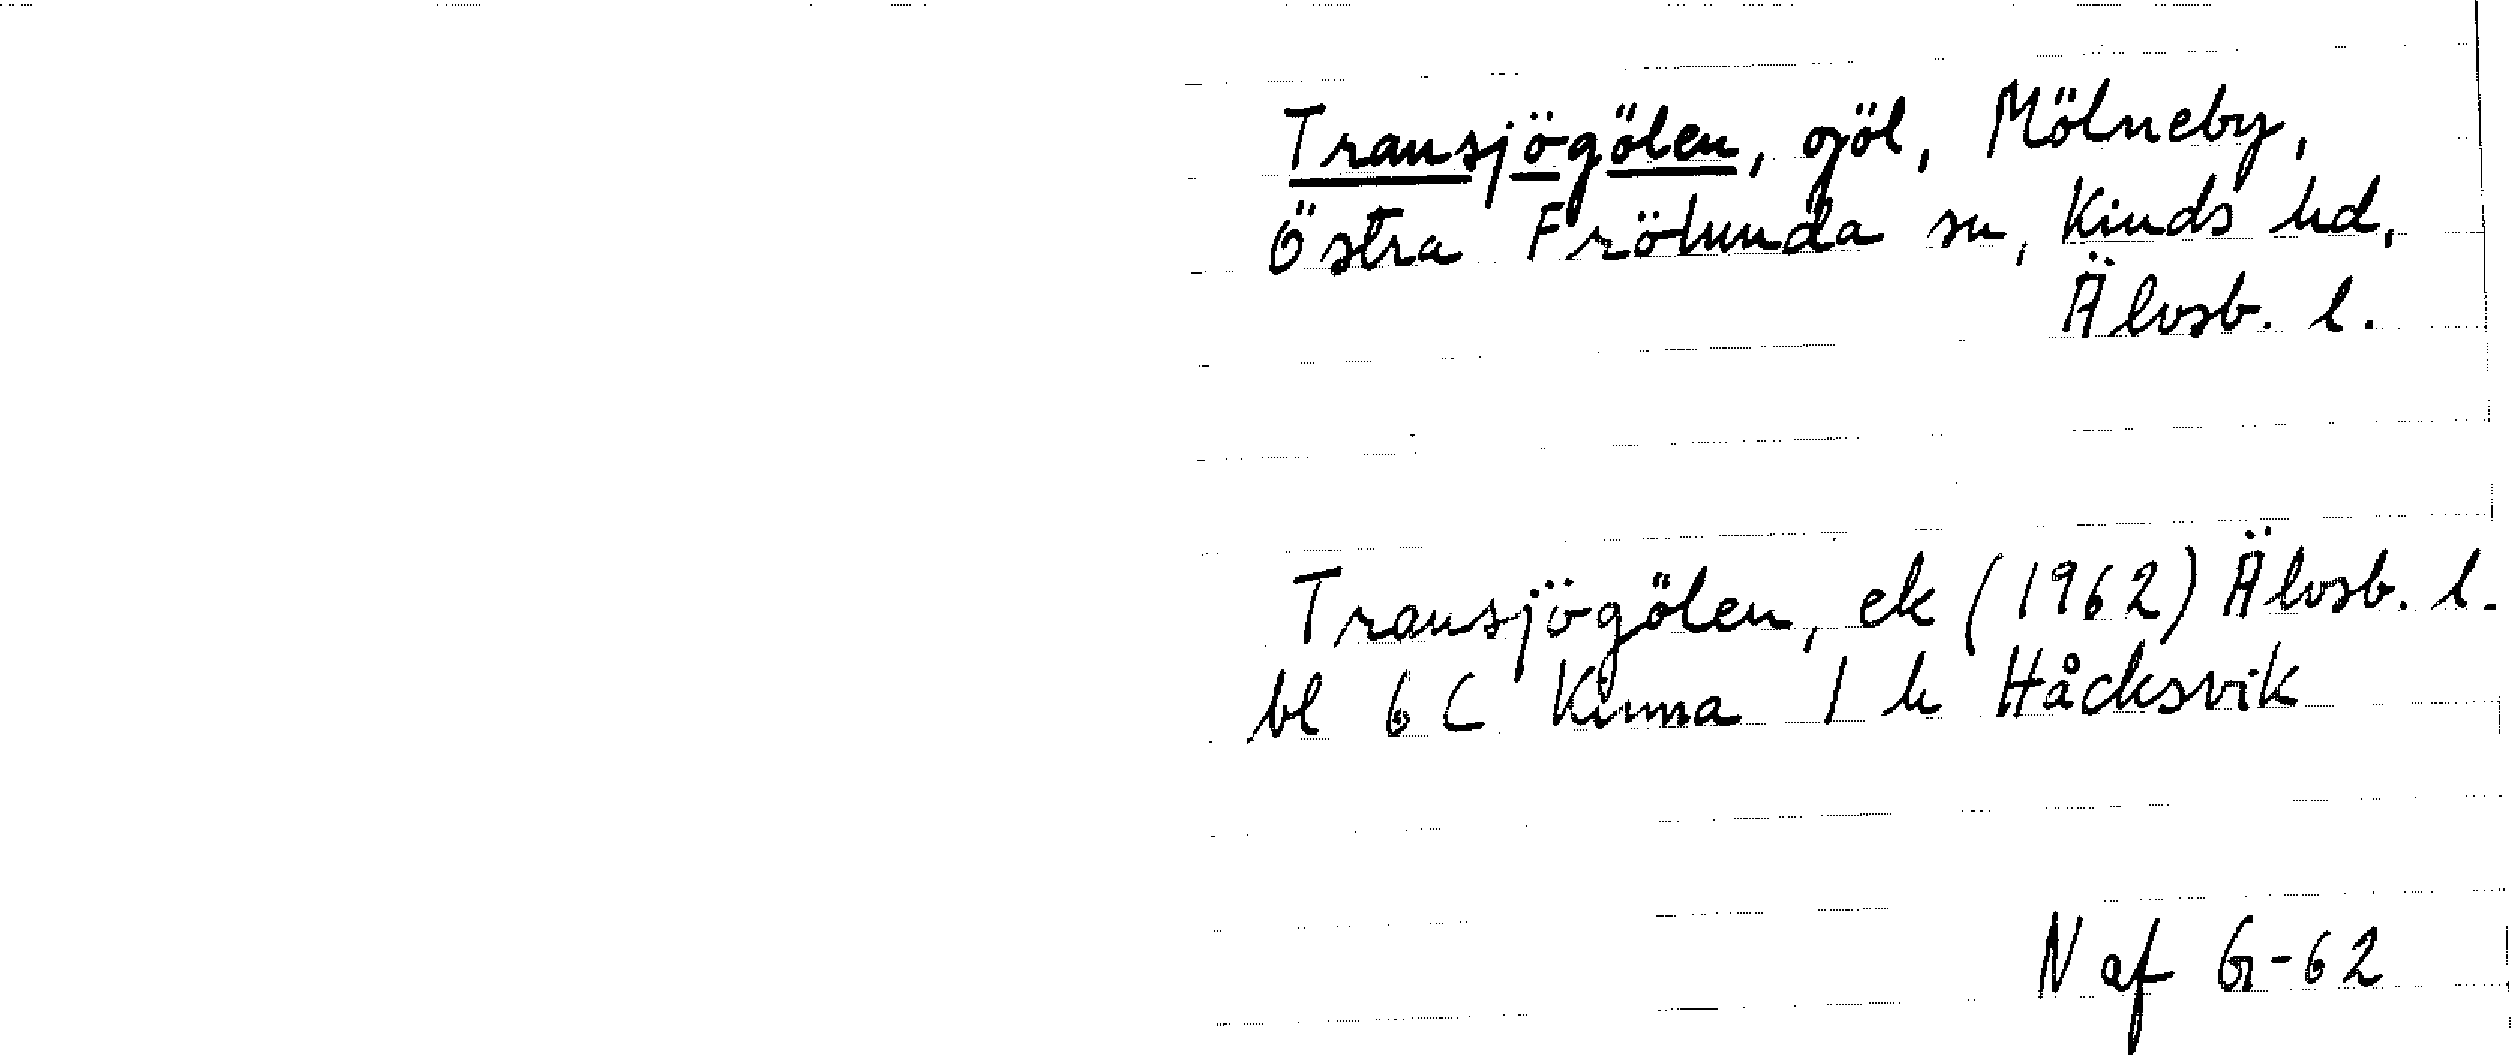 Transjögölen, göl, Mölneby,
Östra Frölunda sn, Kinds hd,
Älvsb. l.
Transjögölen, ek (1962) Älvsb. l.
bl 6 C Kinna 1 h Håcksvik
N af G-62